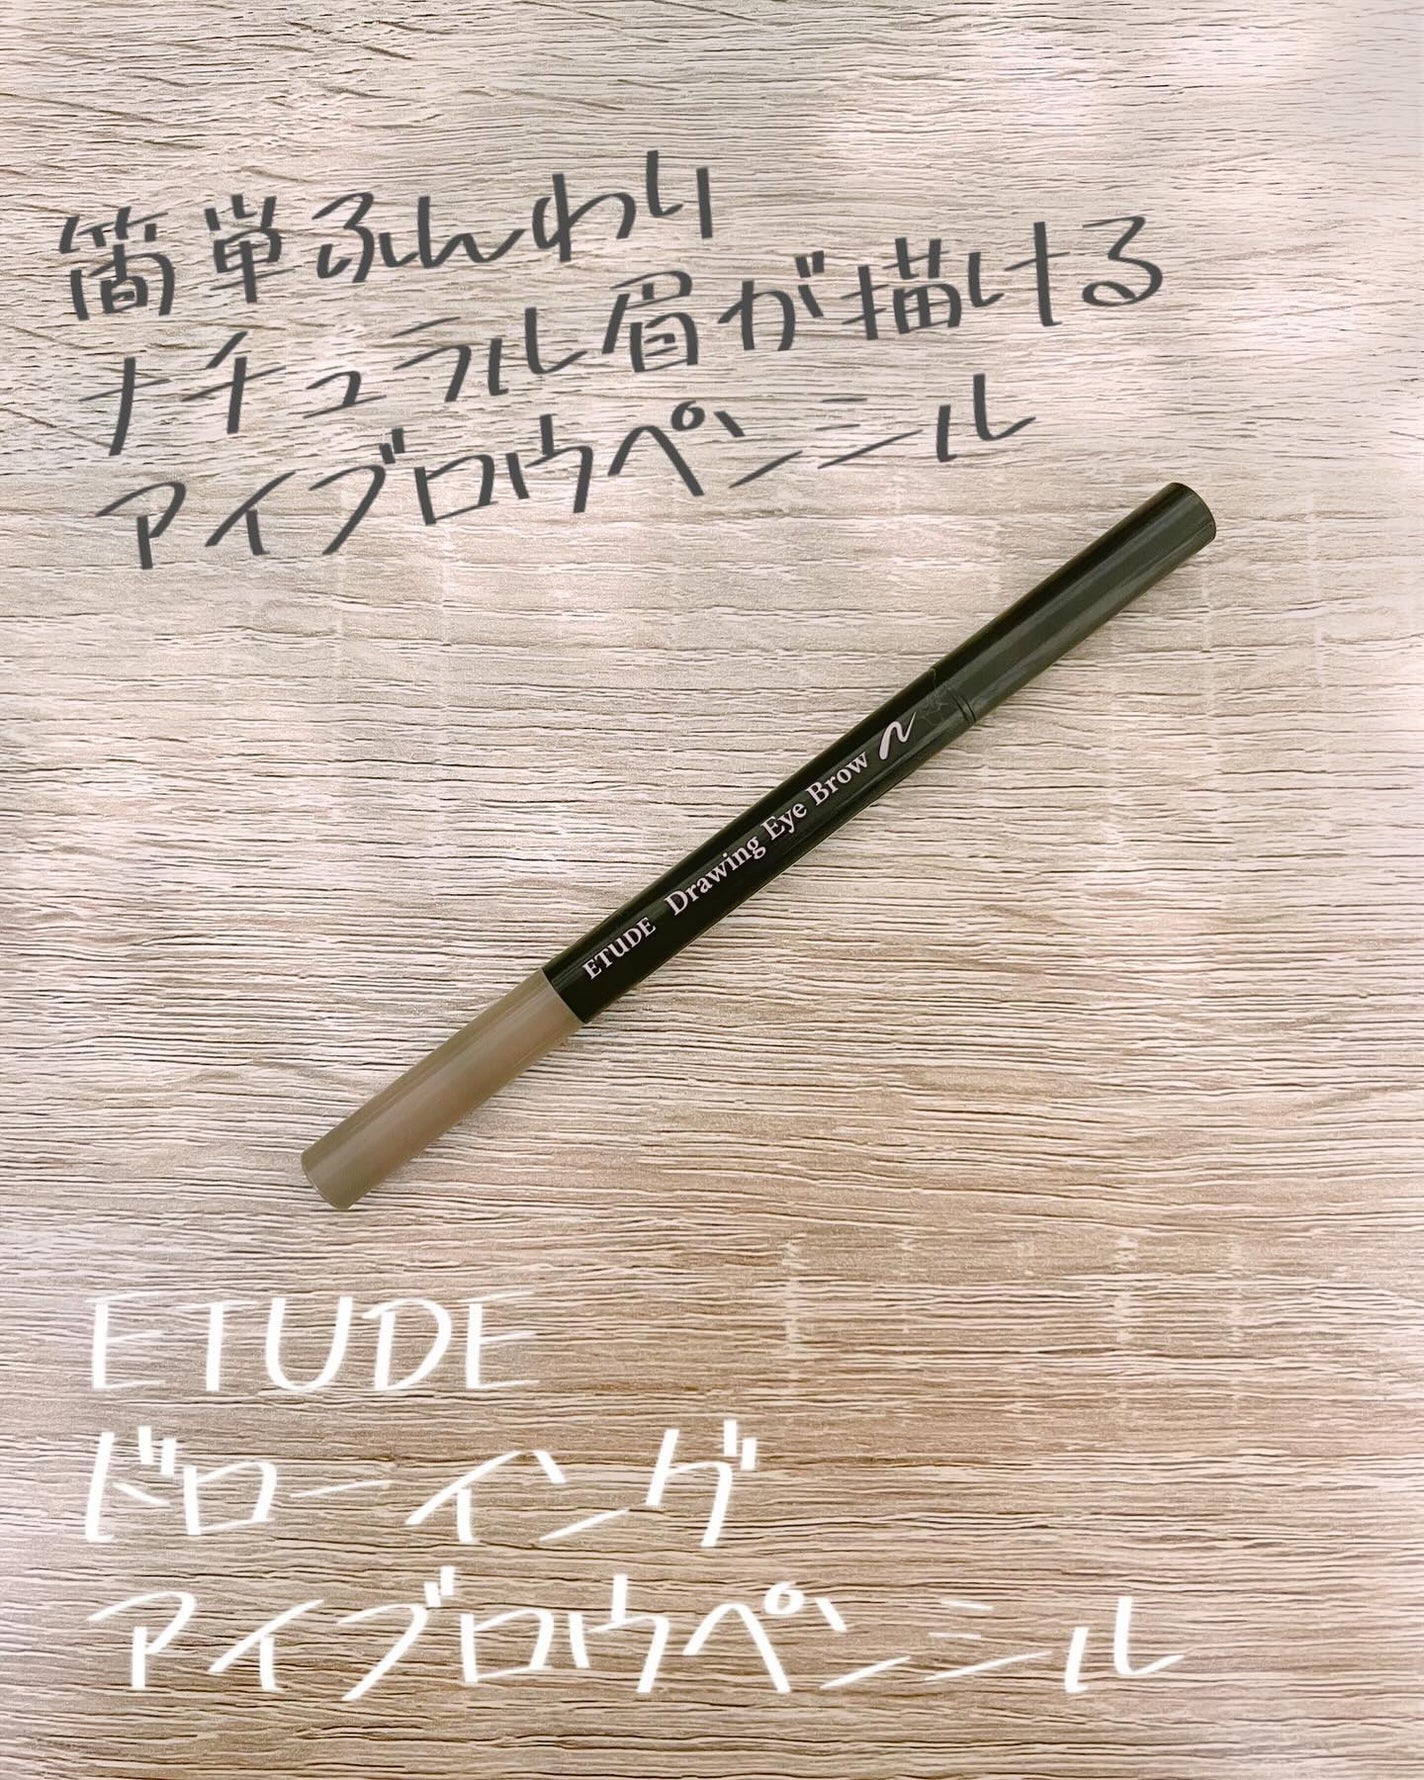 簡単ふんわり
ナチュラル眉が描ける
アイブロウペンシル
ETUDE Drawing Eye Brow
ETUDE
ドローイング
アイブロウペンシル